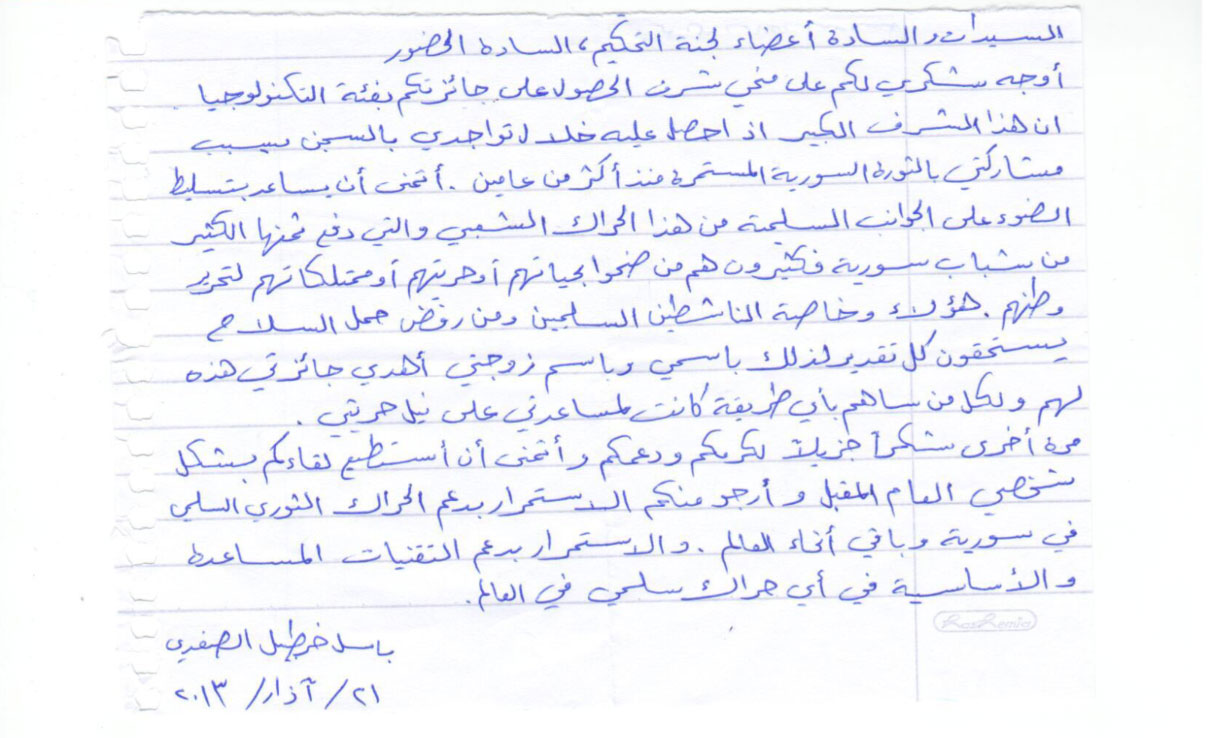 السيدات والسادة أعضاء لجنة التحكيم، السادة الحضور
أوجه شكري لكم على منحي شرف الحصول على جائزتكم بفئة التكنولوجيا
ان هذا الشرف الكبير اذ احصل عليه خلال تواجدي بالسجن بسبب
مشاركتي بالثورة السورية المستمرة منذ أكثر من عامين. أتمنى أن يساعد بتسليط
الضوء على الجوانب السلمية من هذا الحراك الشعبي والتي دفع ثمنها الكثير
من شباب سورية فكثيرون هم من ضحوا بحياتهم أو حريتهم أو ممتلكاتهم لتحرير
وطنهم. هؤلاء وخاصة الناشطين السلميين ومن رفض حمل السلاح
يستحقون كل تقدير لذلك باسمي وباسم زوجتي أهدي جائزتي هذه
لهم ولكل من ساهم بأي طريقة كانت لمساعدتي على نيل حريتي.
مرة أخرى شكراً جزيلاً لكرمكم ودعمكم وأتمنى أن أستطيع لقاءكم بشكل
شخصي العام المقبل وأرجو منكم الاستمرار بدعم الحراك الثوري السلمي
في سورية وباقي أنحاء العالم. والاستمرار بدعم التقنيات المساعدة
والأساسية في أي حراك سلمي في العالم.
باسل خرطبيل الصفدي
٢١/ آذار/ ٢٠١٣